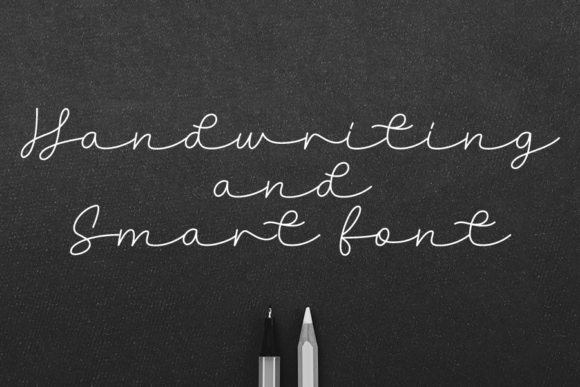 Handwriting
and
Smart font